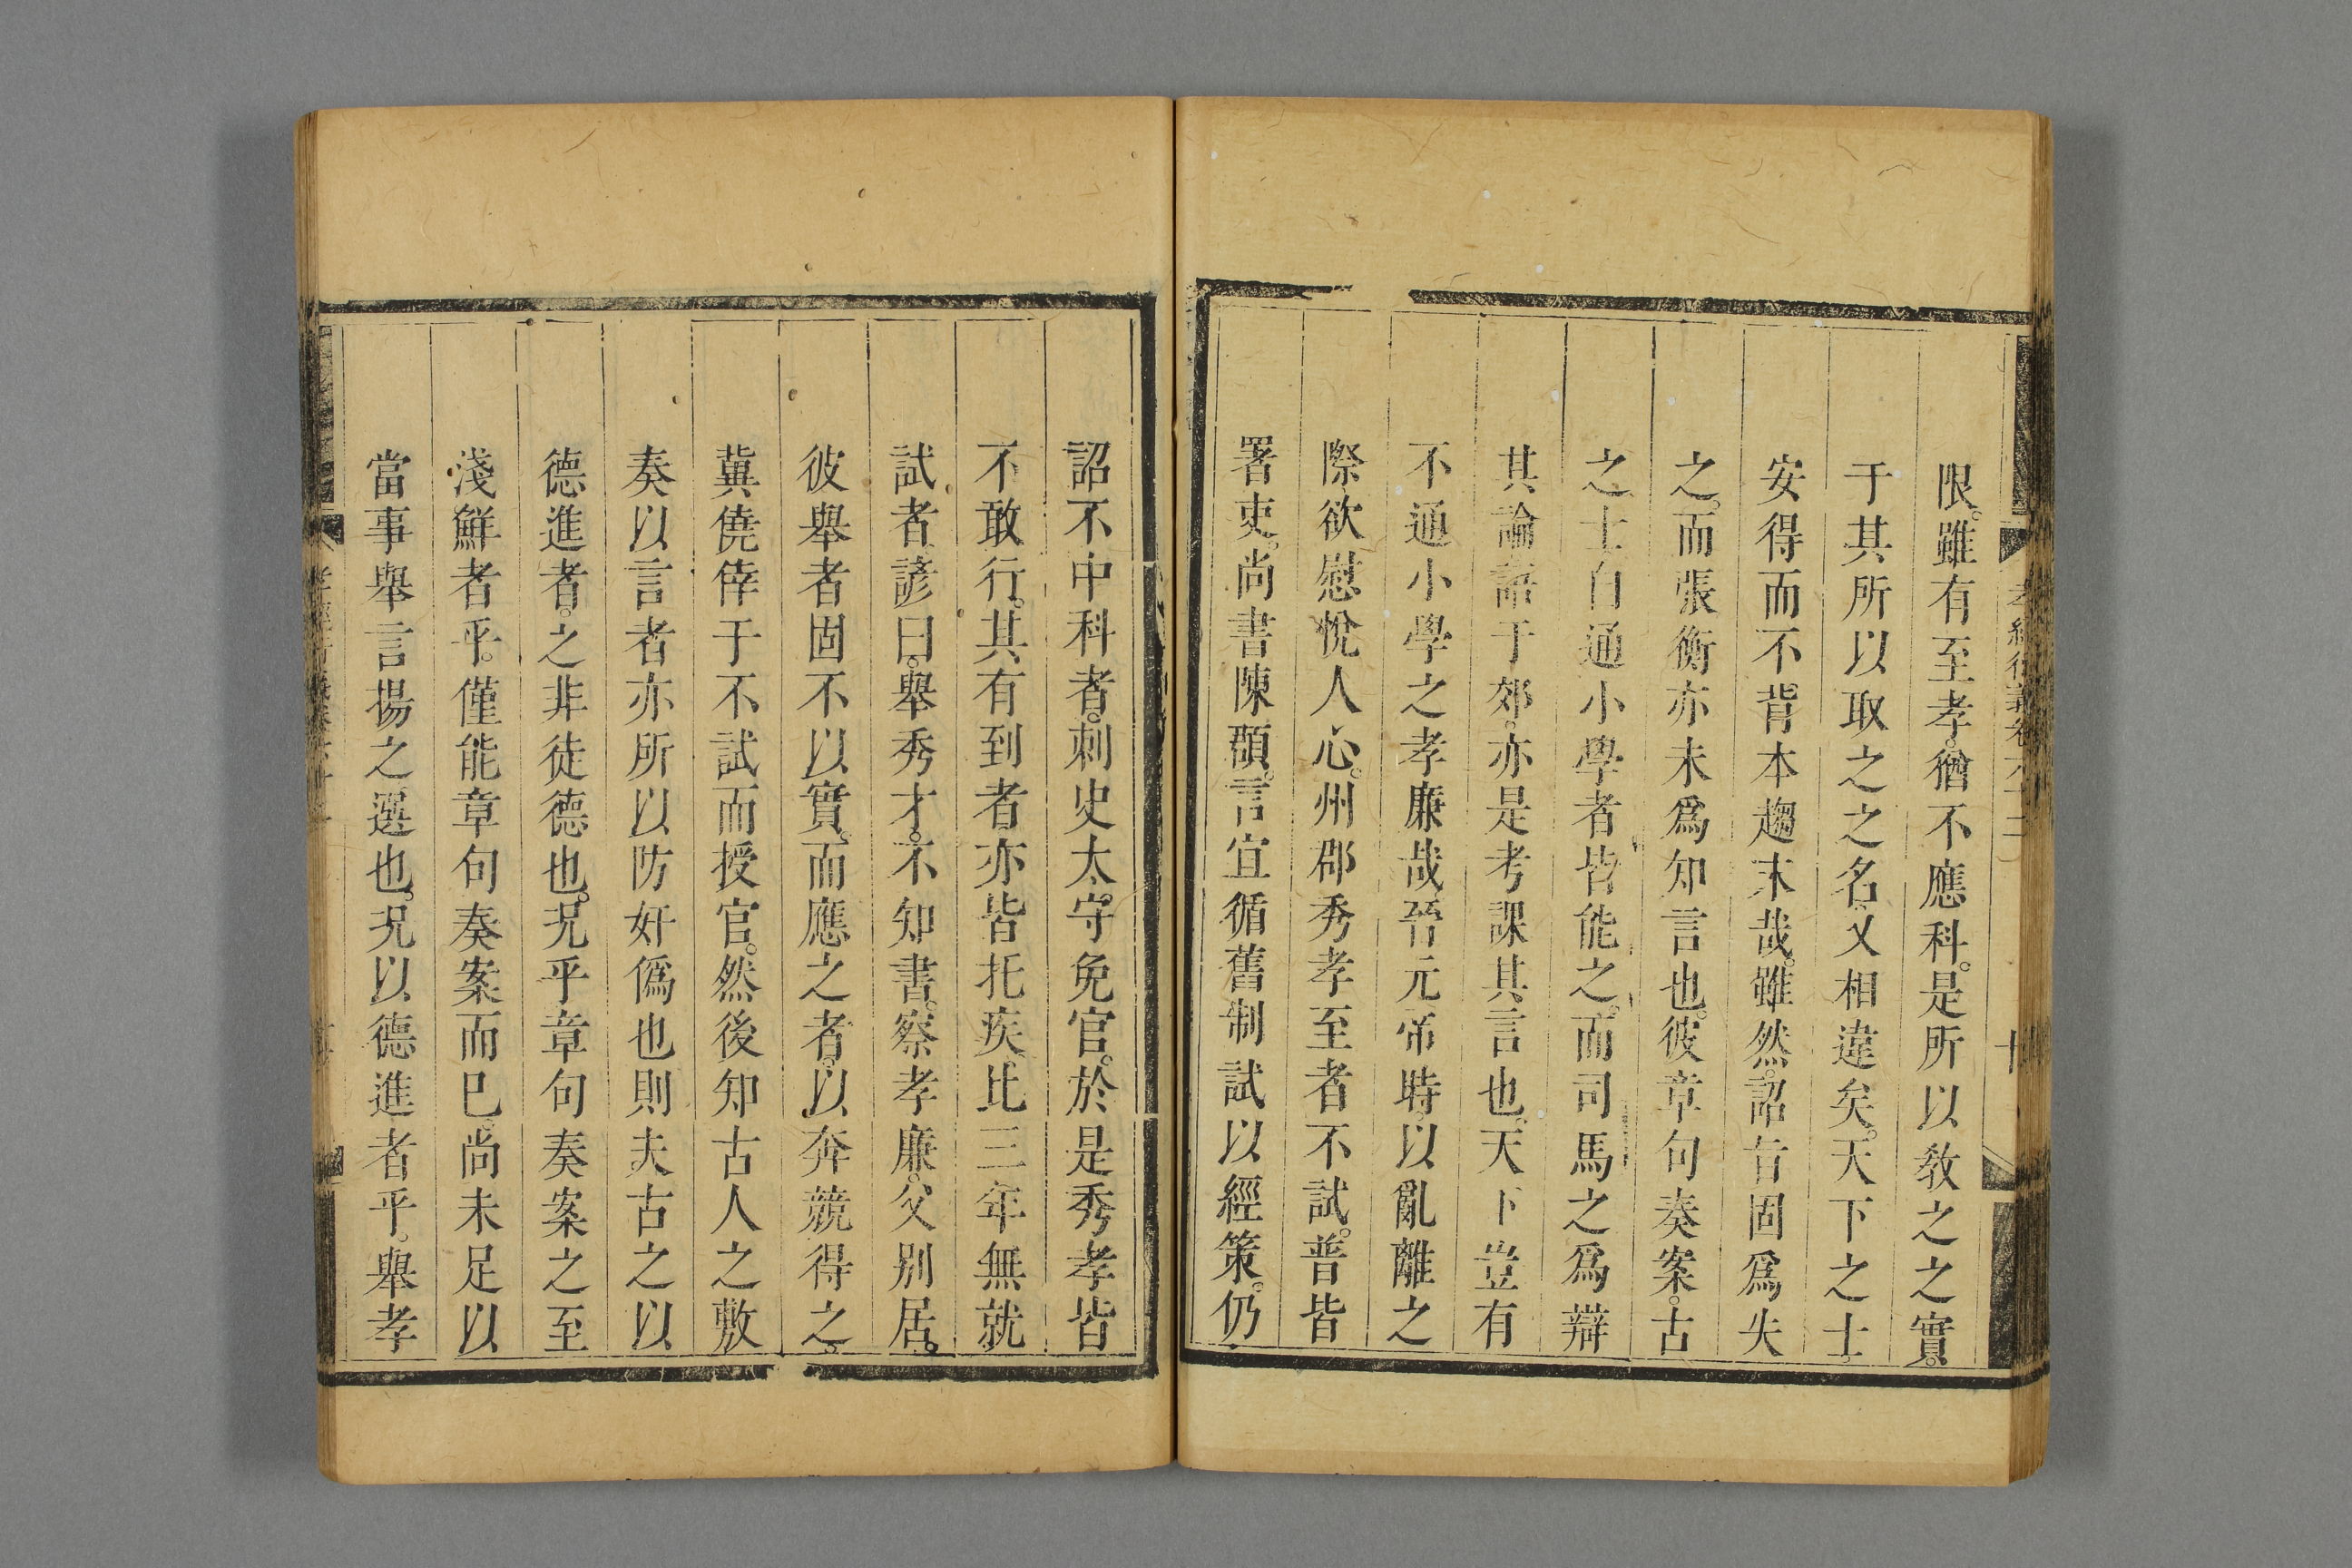 限。雖有至孝。猶不應科。是所以敎之之實。
于其所以取之之名。又相違矣。天下之士。
安得而不背本趨末哉。雖然。詔旨固爲失
之。而張衡亦未爲知言也。彼章句奏案。古
之士自通小學者皆能之。而司馬之爲辯
其論語于郊。亦是考課其言也。天下豈有
不通小學之孝廉哉。晉元帝時。以亂離之
際欲慰悅人心。州郡秀孝至者不試。普皆
署吏。尚書陳頵。言宜循舊制試以經策。仍
詔不中科者。刺史太守免官。於是秀孝皆
不敢行。其有到者亦皆托疾。比三年無就
試者。諺曰。舉秀才。不知書。察孝廉。父別居。
彼舉者固不以實。而應之者。以奔競得之。
冀僥倖于不試而授官。然後知古人之敷
奏以言者亦所以防奸僞也則夫古之以
德進者。之非徒德也。況乎章句奏案之至
淺鮮者乎。僅能章句奏案而已。尚未足以
當事舉言揚之選也。況以德進者乎。舉孝